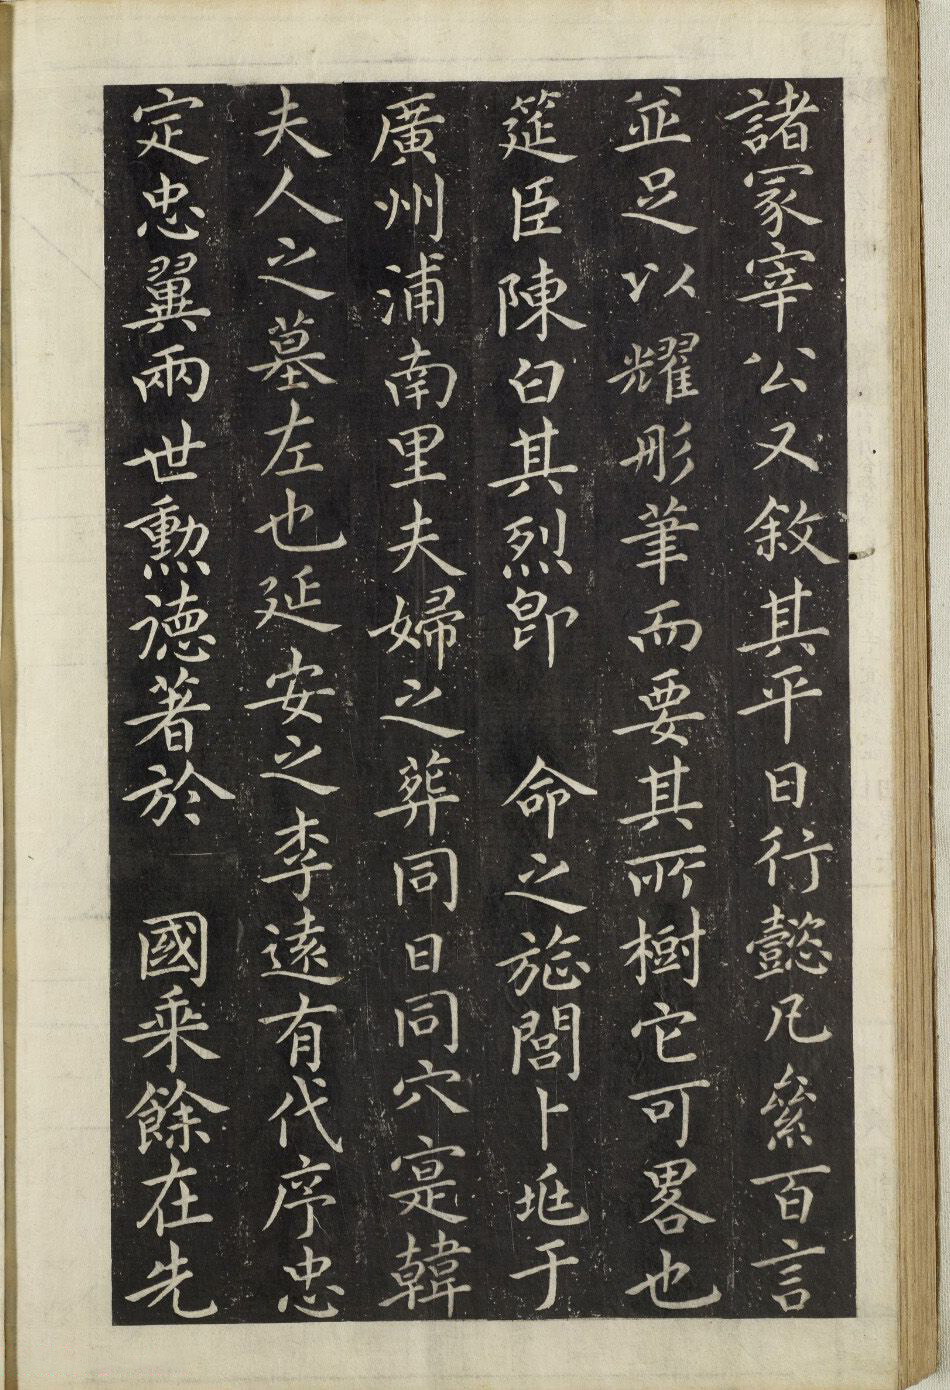 諸冢宰公又敘其平日行懿凡絫百言
並足以耀彤筆而要其所樹它可畧也
筵臣陳白其烈卽　命之旌閭卜兆于
廣州浦南里夫婦之葬同日同穴寔韓
夫人之墓左也延安之李遠有代序忠
定忠翼兩世勳德著於　國乘餘在先